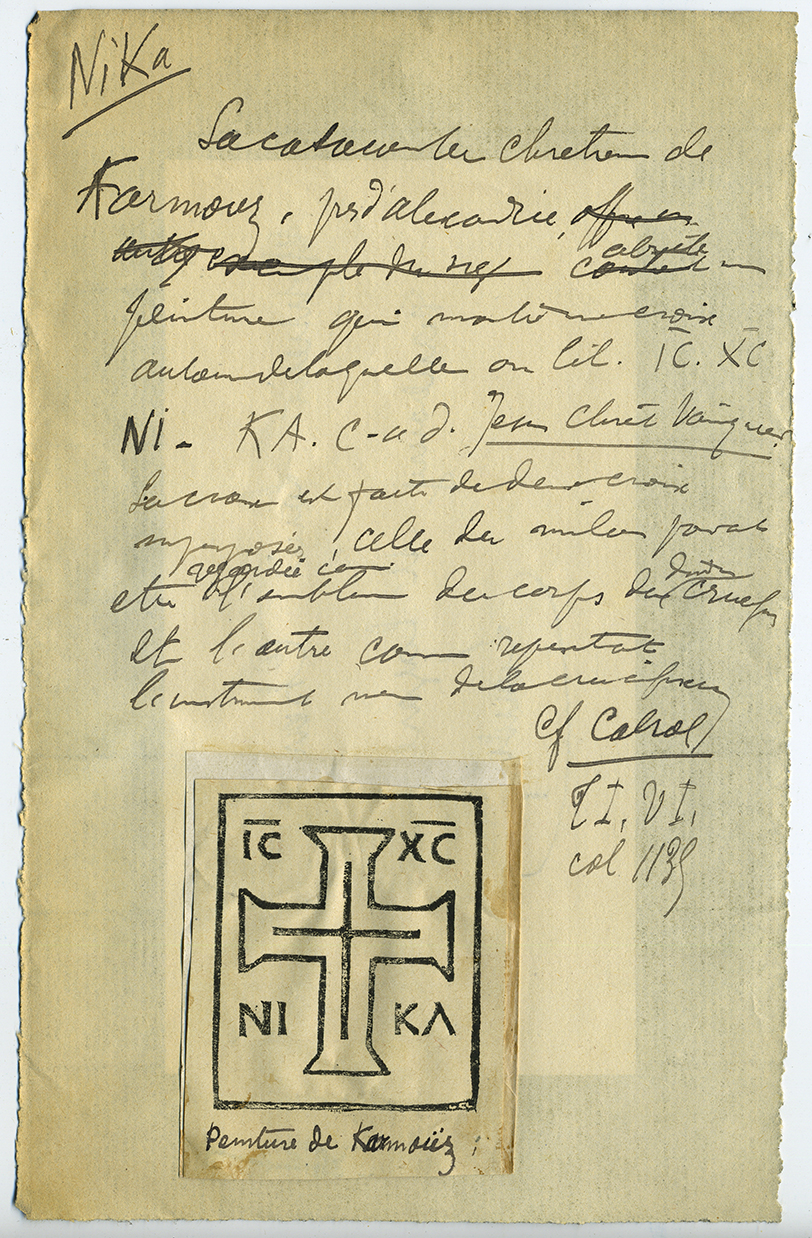 NiKa
La catacombe chretienne de
Karmouz, près d'alexandrie, offre un
autre exemple du
abrite
contient une
peinture qui montre une croix
autour de laquelle on lit. I̅C̅. X̅C̅
Ni - KA. c-a d. Jesus Christ Vainqueur.
La croix est faite de deux croix
superposées, celle du milieu parait
regardée ici
etre l'embleme du corps du divin Crucifié
et l'autre comme representant
l'instrument meme de la crucifixion
cf Cabrol
T I, V I,
col 1135
I̅C̅ X̅C̅
NI KΛ
Peinture de Karmoüz ;